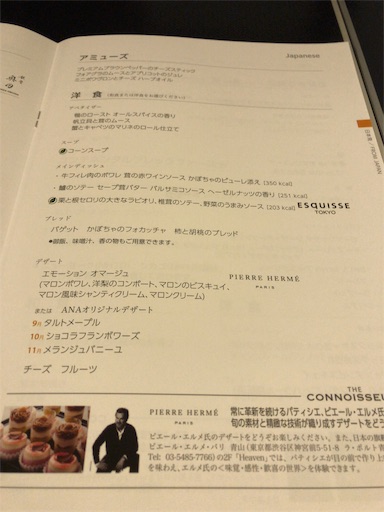 Japanese
アミューズ
プレミアムブラウンペッパーのチーズスティック
フォアグラのムースとアプリコットのジュレ
ミニボワブロンとチーズ ハーブオイル
洋食
アペタイザー
鴨のロースト オールスパイスの香り
帆立貝と茸のムース
蟹とキャベツのマリネのロール仕立て
スープ
コーンスープ
メインディッシュ
・牛フィレ肉のポワレ 茸の赤ワインソース かぼちゃのピューレ添え (550 kcal)
・鱸のソテー セープ茸バター バルサミコソース ヘーゼルナッツの香り (251 kcal)
栗と根セロリの大きなラビオリ、椎茸のソテー、野菜のうまみソース (203 kcal)
ESQUISSE
TOKYO
ブレッド
バゲット かぼちゃのフォカッチャ 柿と胡桃のブレッド
●御飯、味噌汁、香の物もご用意できます。
デザート
エモーション オマージュ
(マロンポワレ、洋梨のコンポート、マロンのビスキュイ、
マロン風味シャンティクリーム、マロンクリーム)
PIERRE HERMÉ
PARIS
または ANAオリジナルデザート
9月 タルトメープル
10月 ショコラフランボワーズ
11月 メランジュバニーユ
チーズ フルーツ
THE
CONNOISSEU
PIERRE HERMÉ
PARIS
常に革新を続けるパティシエ、ピエール・エルメ氏
旬の素材と精緻な技術が織り成すデザートをどう
ピエール・エルメ氏のデザートをどうぞお楽しみください。また、日本の旗艦
エール・エルメ・パリ 青山(東京都渋谷区神宮前5-51-8 ラ・ポルト青
Tel: 03-5485-7766)の2F「Heaven」では、パティシエが目の前で作り上
を味わえ、エルメ氏の≪味覚・感性・歓喜の世界≫を体験できます。